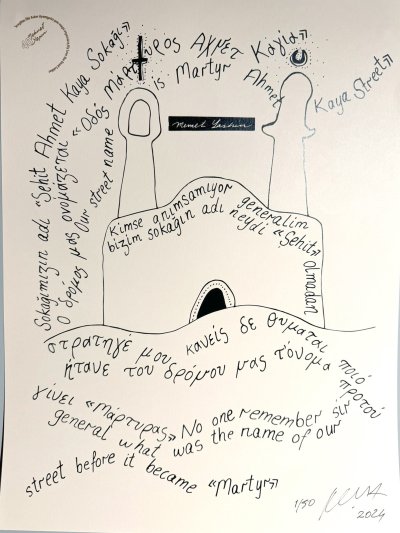 Sokağımızın adı «Şehit Ahmet Kaya Sokağı»
Ο δρόμος μας ονομάζεται «Οδός Μάρτυρος Αχμέτ Καγιά»
Our street name is Martyr Ahmet Kaya Street»
Memet Yashin
Kimse anımsamıyor generalim
bizim sokağın adı neydi «Şehit» olmadan
στρατηγέ μου κανείς δε θυμάται ποιό
ήτανε του δρόμου μας τ'όνομα προτού
γίνει «Μάρτυρας» No one remember sir
general what was the name of our
street before it became «Martyr»
1/50
2024